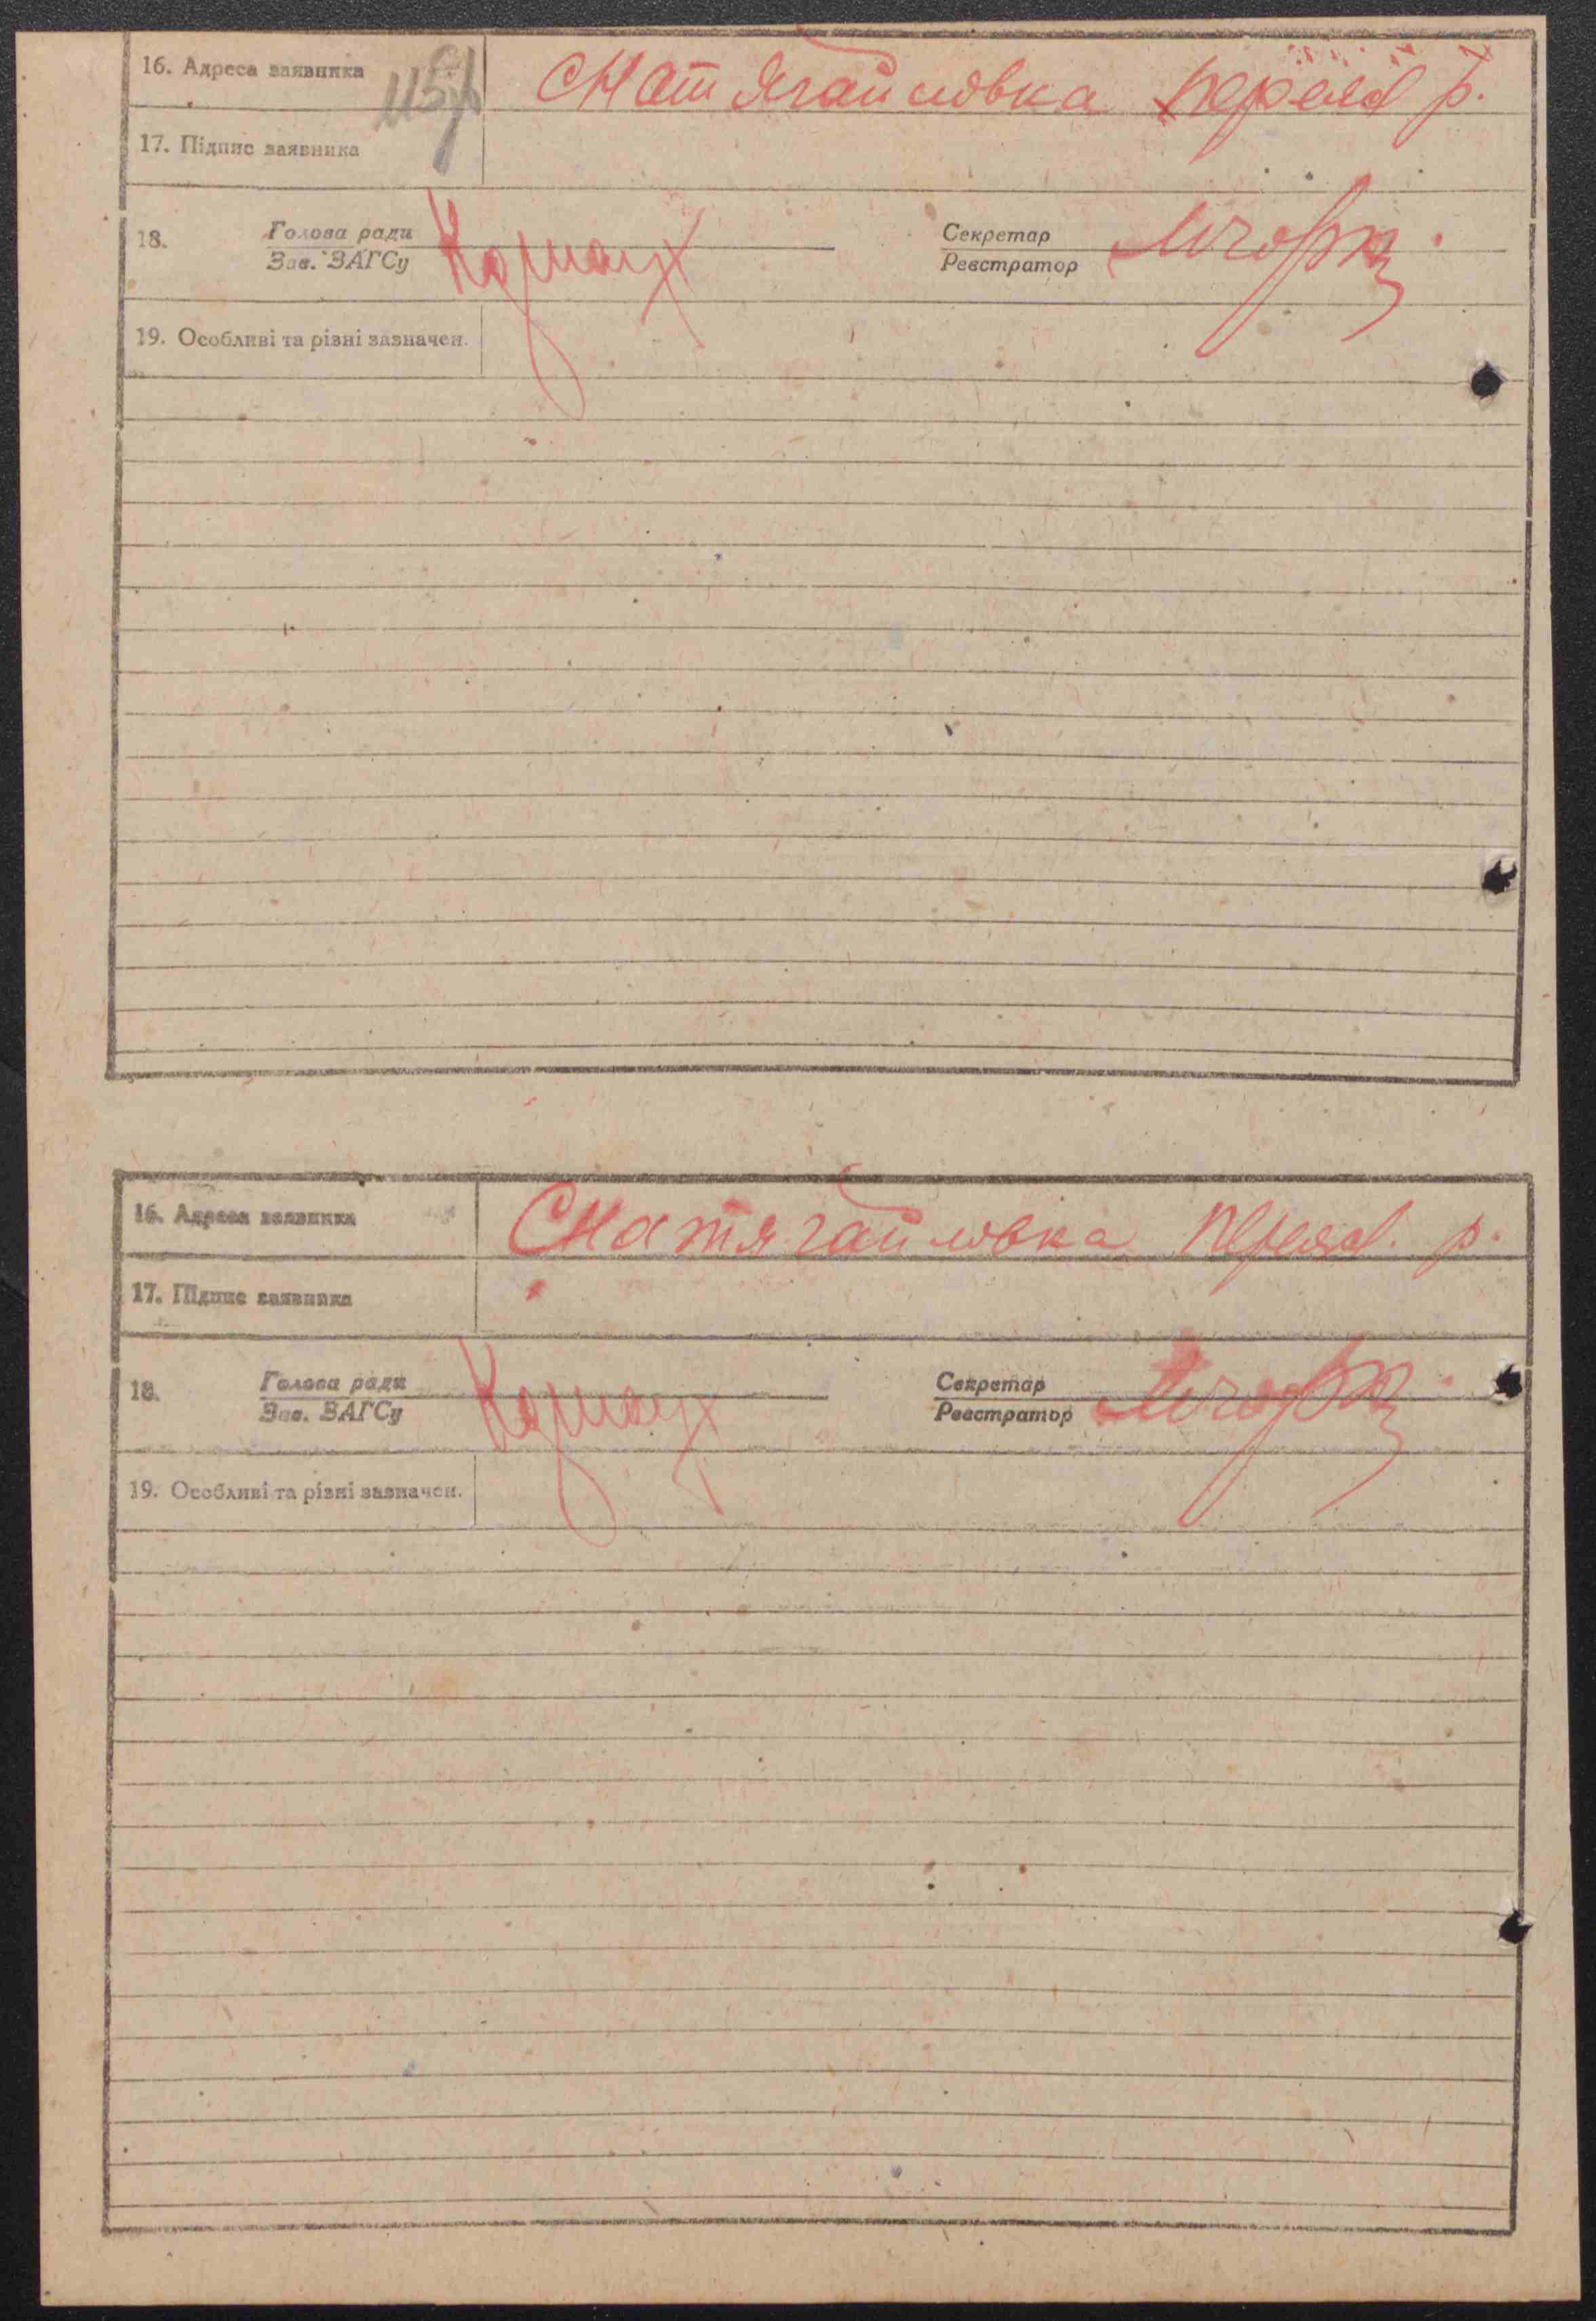 16. Адреса заявника с Натягайловка переяс р.
17. Підпис заявника
18. Голова ради Секретар
Зав. ЗАГСу Реєстратор
19. Особливі та різні зазначен.
16. Адреса заявника с Натягайловка переяс. р.
17. Підпис заявника
18. Голова ради Секретар
Зав. ЗАГСу Реєстратор
19. Особливі та різні зазначен.